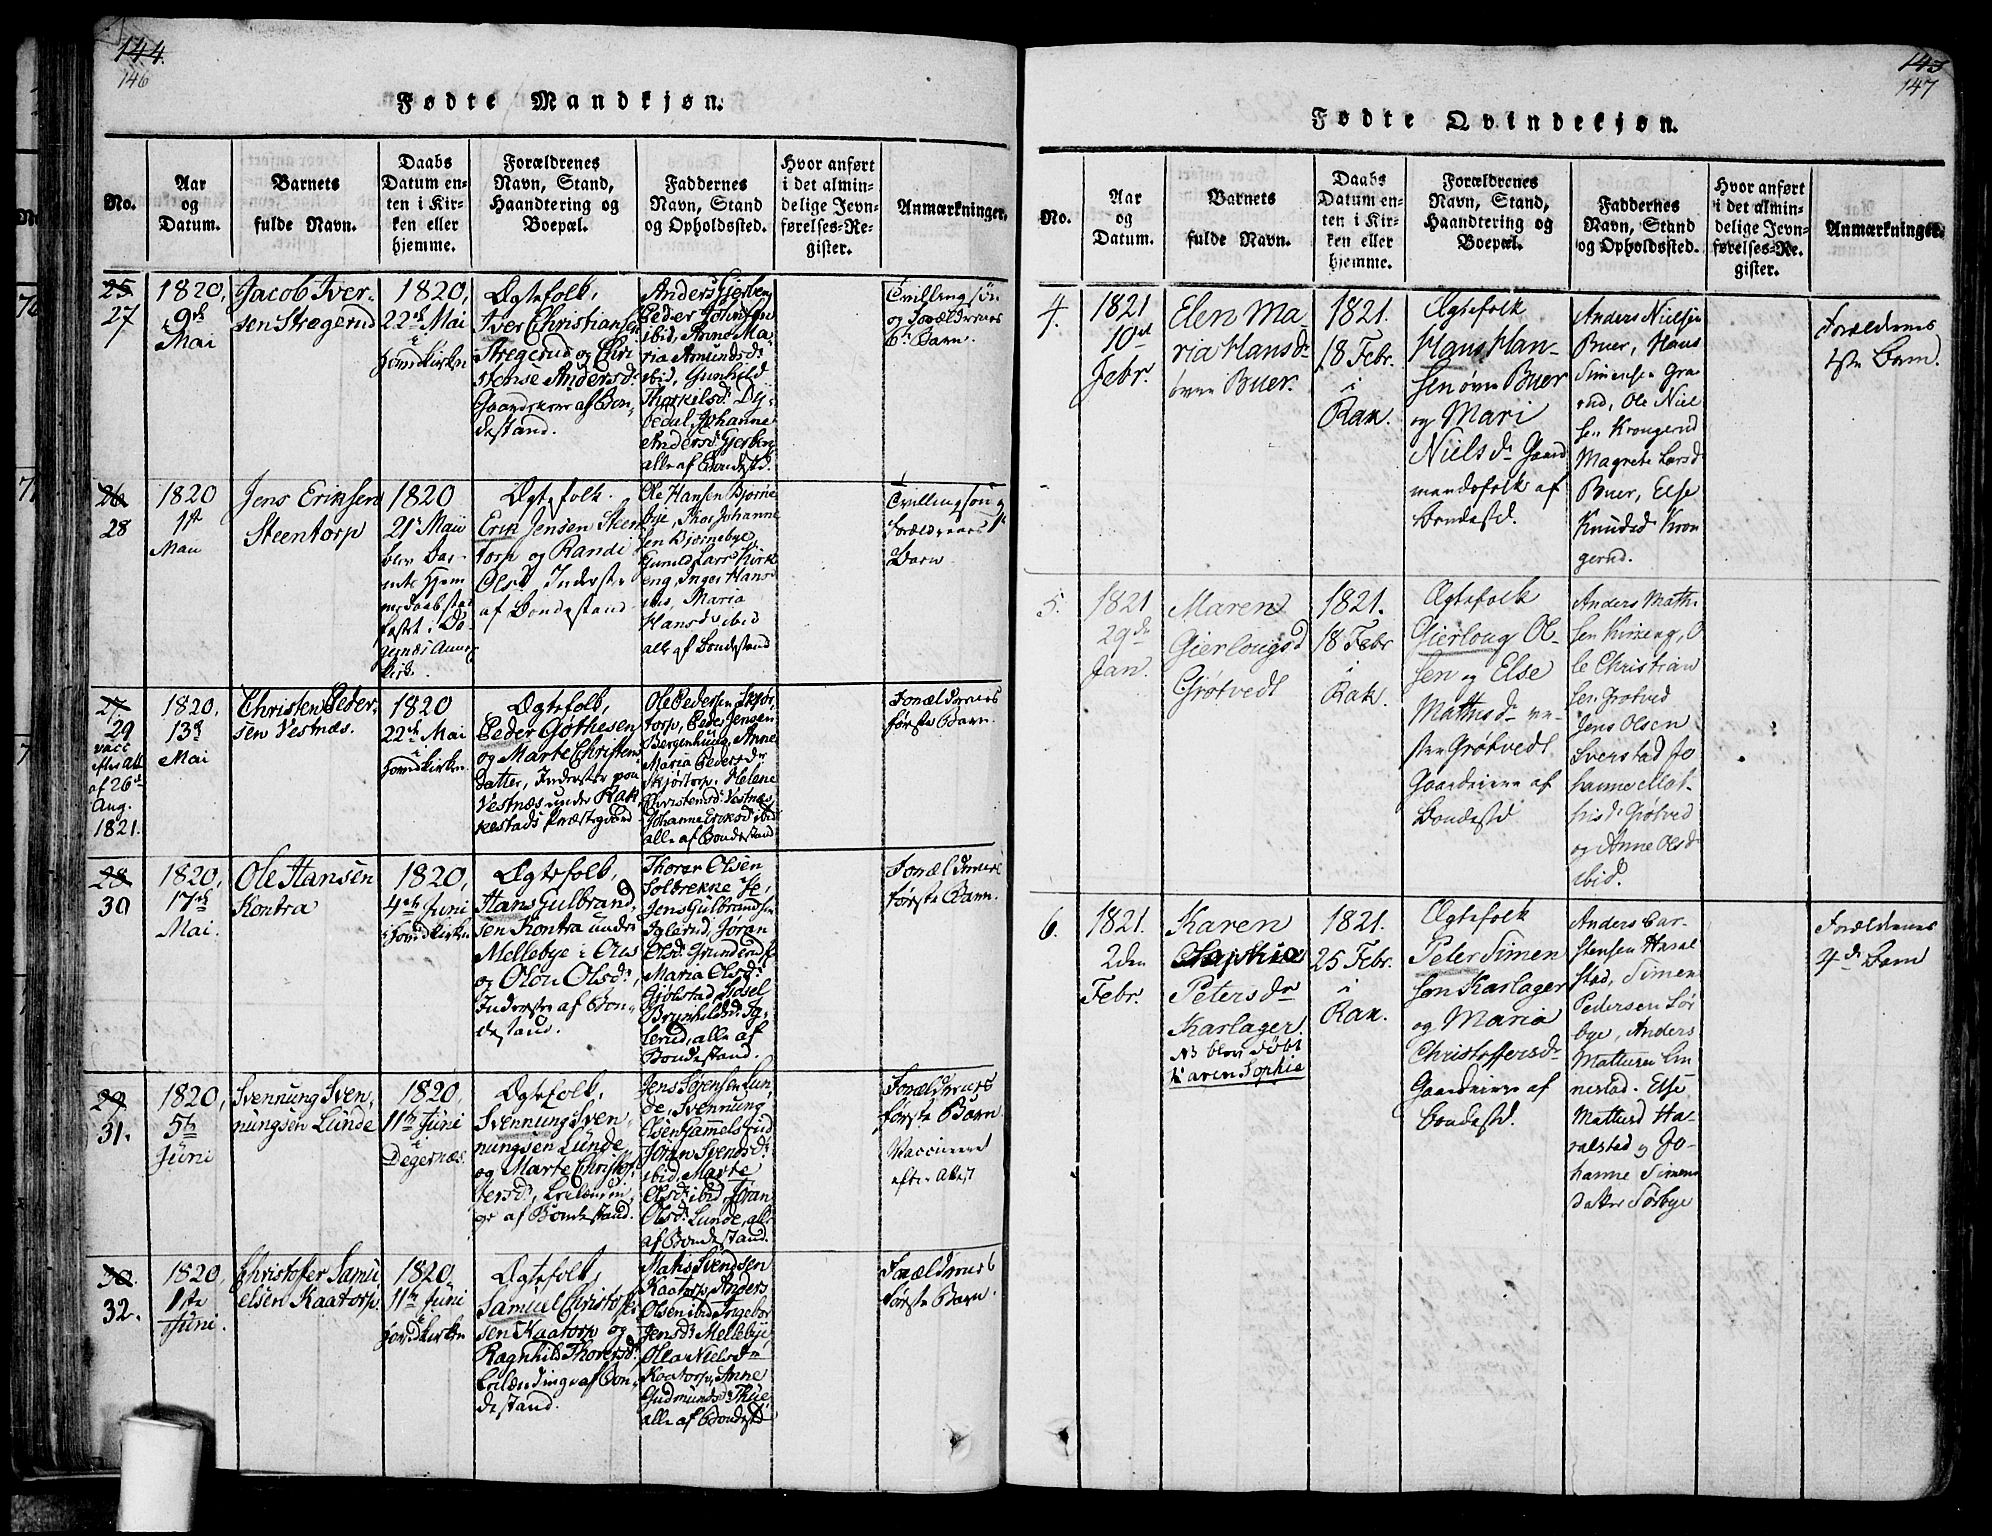 144.
146
Fødte Mandkjøn.
No.
Aar
og
Datum.
Barnets
fulde Navn.
Daabs
Datum en-
ten i Kir-
ken eller
hjemme.
Forældrenes
Navn, Stand,
Haandtering og
Boepæl.
Faddernes
Navn, Stand
og Opholdssted.
Hvor anført
i det almin-
delige Jevn-
førelses-Re-
gister.
Anmærkninger.
25
27
1820,
9de
Mai
Jacob Iver-
sen Stregerud
1820,
22de Mai
i
Hovedkirken
Ægtefolk,
Iver Christiansen
Stregerud og Chri
stense Andersd.
Gaardskone af Bon-
destand.
Anders Gjerberg
Peder Johnsen
ibid, Anne Ma-
ria Asmundsd.
ibid, Gunhild
Thorkelsd. Dy-
bedal, Johanne
Andersd. Gjerberg
alle af Bondestd.
Tvillingsøn
og Forældrenes
6te Barn.
26
28
1820
1ste
Maii
Jens Eriksen
Steentorp
1820
21de Maii
blev Bar-
nets Hjem
medaab stad
fæstet i De
gernæs Annex
kirke.
Ægtefolk.
Erik Jensen Steen
torp og Randi
Olsd. Inderster
af Bondestand
Ole Hansen Bjørne
bye, Thor Johanne
sen Bjørnebye,
Gunild Larsd. Kirk
eng, Inger Hans
Maria
Hansd. ibid
alle af Bondestand
Tvillingsøn og
Forældrenes 1ste
Barn
27
29
vacc
efter Att
af 26de
Aug.
1821.
1820,
13de
Mai
Christen Peder-
sen Vestnæs.
1820
22de Mai
i
Hovedkirken
Ægtefolk,
Peder Gøthesen
og Marte Christens
datter, Inderster paa
Vestnæs under Rak
kestads Præstegaard
Ole Pedersen Skjør
torp, Peder Jensen
Bergenhuus, Anne
Maria Pedersd.
Skjørtorp, Helene
Christensd. Vestnæs
Johanne Eriksd. ibid
alle af Bondestand
Forældrenes
første Barn.
28
30
1820,
17de
Mai.
Ole Hansen
Kontra
1820,
4de Juni
i Hovedkirken
Ægtefolk,
Hans Gulbrand-
sen Kontra under
Mellebye i Eies
og Olou Olsd.
Inderster af Bon-
destand.
Thorer Olsen
Solbrekke,
Jens Gulbrandsen
Iglerud, Jøran
Olsd. Grunderud,
Maria Olsd.
Gjølstad, Sidsel
Brynhildsd. Ig-
lerud, alle af
Bondestand.
Forældrenes
første Barn.
29
31.
1820,
5te
Juni
Svennung Sven-
nungsen Lunde
1820,
11te Juni
i
Degernæs.
Ægtefolk,
Svennung Sven-
nungsen Lunde
og Marte Christof-
fersd, Leilændin-
ge af Bondestand.
Jens Sørensen Lun-
de, Svennung
Olsen Gammelsrud
Jøran Svensd.
ibid, Marte
Olsd. ibid, Jøran
Olsd. Lunde, alle
af Bondestand.
Forældrenes
første Barn
Vaccineret
efter Attest
30
32.
1820,
1ste
Juni.
Christoffer Samu
elsen Kaatorp
1820
11te Juni
i
Hovedkirken
Ægtefolk,
Samuel Christoffer
sen Kaatorp og
Ragnhild Thoversd.
Leilændinge af Bon-
destand.
Mathis Svendsen
Kaatorp, Anders
Olsen ibid, Ingebor
Jensd. Mellebye,
Olea Nielsd.
Kaatorp, Anne
Gudmundsd. Thue
alle af Bondestd
145
147
Fødte Qvindekjøn.
No.
Aar
og
Datum.
Barnets
fulde Navn.
Daabs
Datum en-
ten i Kir-
ken eller
hjemme.
Forældrenes
Navn, Stand,
Haandtering og
Boepæl.
Faddernes
Navn, Stand
og Opholdssted.
Hvor anført
i det almin-
delige Jevn-
førelses-Re-
gister.
Anmærkninger.
4.
1821
10de
Febr.
Elen Ma-
ria Hansdr
øvre Buer.
1821.
18 Febr.
i
Rak.
Ægtefolk
Hans Han-
sen øvre Buer
og Mari
Nielsdr. Gaard
mandsfolk af
bondestd.
Anders Nielsen
Buer, Hans
Simensen Gra-
rud, Ole Niel
sen Krongerud
Magrete Larsd
Buer, Else
Knudsd Kron
gerud.
Forældrenes
1ste Barn.
5.
1821
29de
Jan.
Maren
Gierlougsd
Grøtvedt
1821.
18 Febr
i
Rak.
Ægtefolk
Gierloug Ol-
sen og Else
Mathisdr ne-
dre Grøtvedt
Gaardeiere af
Bondestd
Anders Mathi
sen Kirkeng, O
le Christian
sen Grøtved
Jens Olsen
Sverstad Jo
hanne Mat-
hisdr Grøtved
og Anne Olsd
ibid.
6.
1821.
2den
Febr.
Karen
Sophia
Petersdr
Karlager.
NB blev døbt
Karen Sophie
1821.
25 Febr.
i
Rak.
Ægtefolk
Peter Simen
sen Karlager
og Maria
Christoffersdr
Gaardeiere af
bondestd.
Anders Car-
stensen Haral
stad, Simen
Pedersen Sør
bye, Anders
Mattisen Lin
nestad. Else
Mattisd Ha-
ralstad og Jo-
hanne Simens
datter Sørbye
Forældrenes
4de Barn